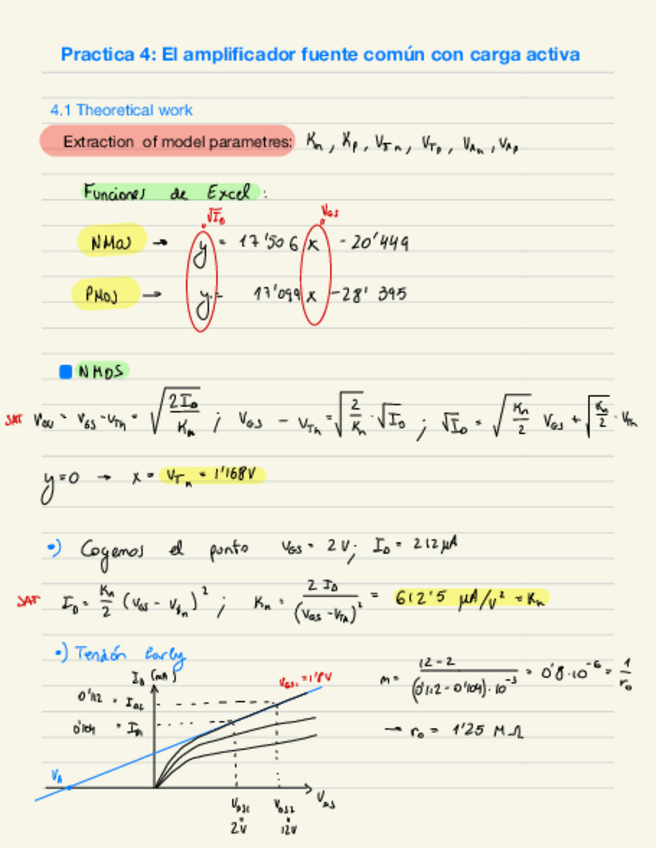 Practica 4: El amplificador fuente común con carga activa
4.1 Theoretical work
Extraction of model parametres: Kn, Kp, VTn, VTp, VAn, VAp
Funciones de Excel:
√ID VGS
NMOS → y = 17'506 x - 20'449
PMOS → y = 17'099 x - 28'395
NMOS
SAT VOV = VGS - VTn = √(2ID/Kn) ; VGS - VTn = √(2/Kn) · √ID ; √ID = √(Kn/2) VGS + √(Kn/2) · VTn
y=0 → x = VTn = 1'168V
•) Cogemos el punto VGS = 2V; ID = 212 μA
SAT ID = Kn/2 (VGS - VTn)² ; Kn = 2ID/(VGS - VTn)² = 612'5 μA/V² = Kn
•) Tensión Early
ID (mA) VGS1 = 1'8V
0'112 = ID2
0'104 = ID1
VA
VDS1 VDS2 VDS
2V 12V
m = (12-2)/((0'112 - 0'104)·10⁻³) = 0'8·10⁻⁶ = 1/ro
→ ro = 1'25 MΩ